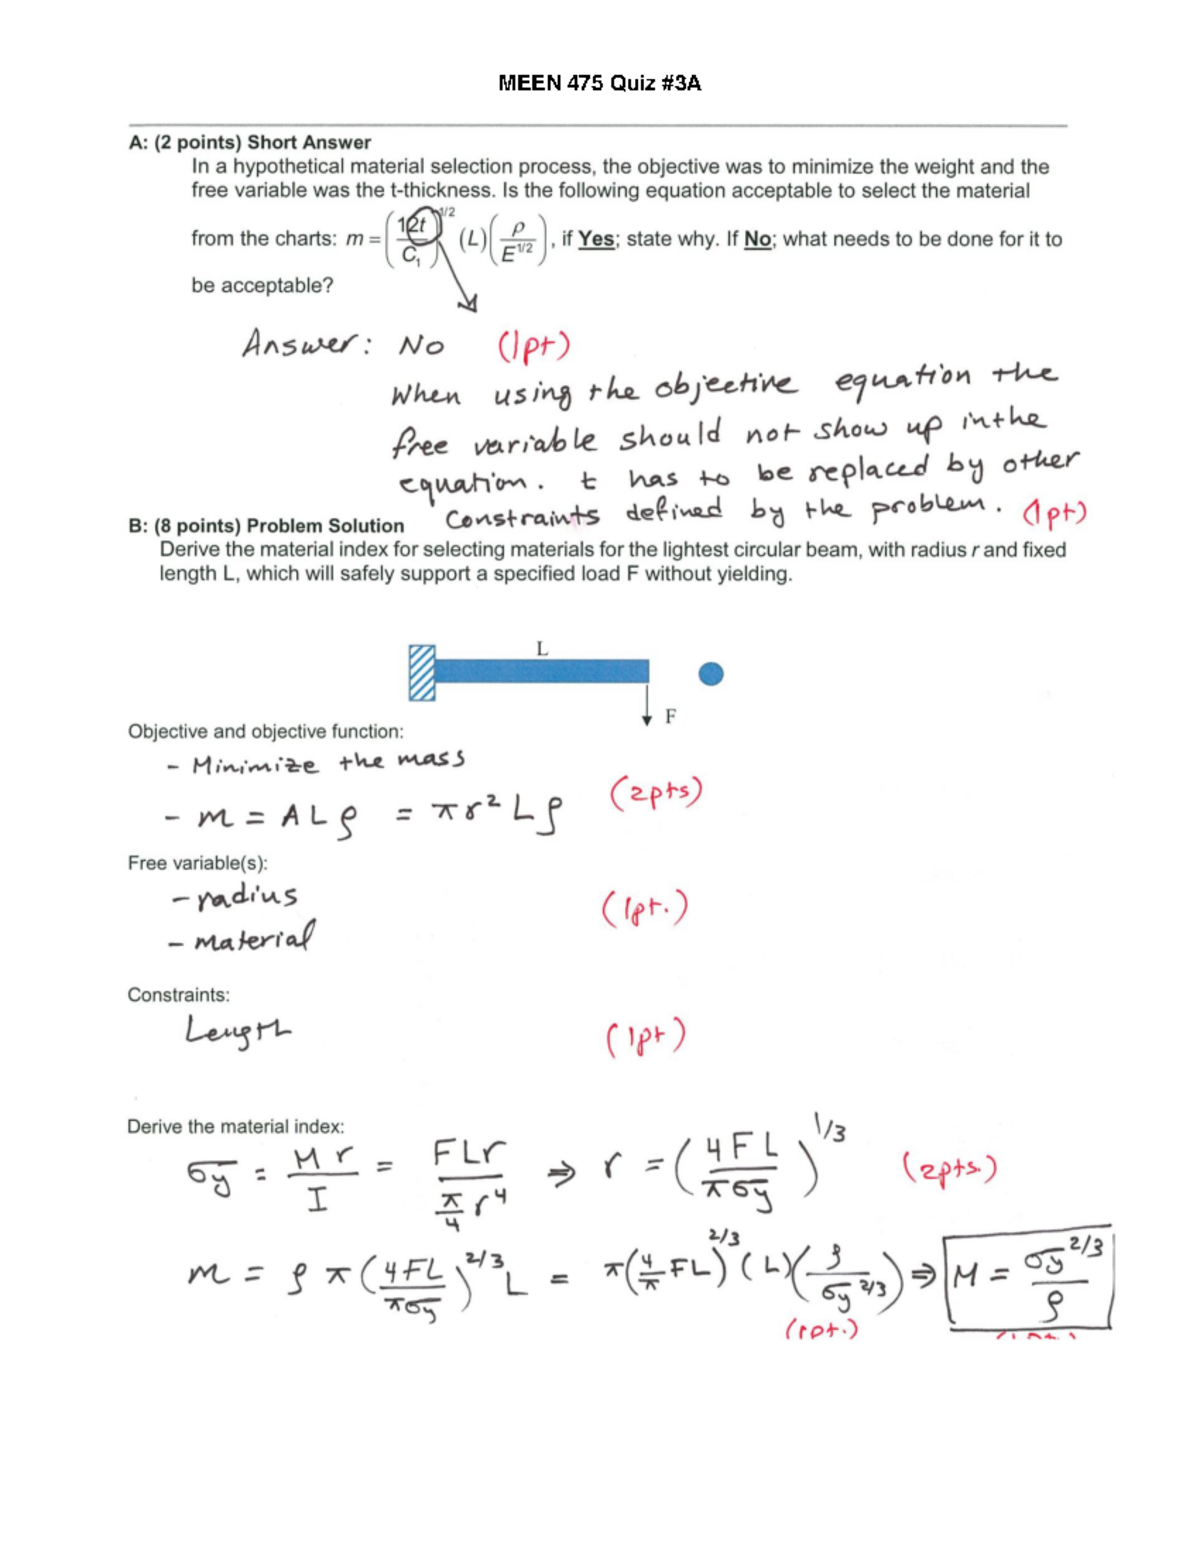 MEEN 475 Quiz #3A
A: (2 points) Short Answer
In a hypothetical material selection process, the objective was to minimize the weight and the
free variable was the t-thickness. Is the following equation acceptable to select the material
from the charts: m = (12t/C₁)^1/2 (L)(ρ/E^1/2), if Yes; state why. If No; what needs to be done for it to
be acceptable?
Answer: No (1pt)
When using the objective equation the
free variable should not show up in the
equation. t has to be replaced by other
constraints defined by the problem. (1pt)
B: (8 points) Problem Solution
Derive the material index for selecting materials for the lightest circular beam, with radius r and fixed
length L, which will safely support a specified load F without yielding.
L
F
Objective and objective function:
- Minimize the mass
- m = ALρ = πr²Lρ (2pts)
Free variable(s):
- radius (1pt.)
- material
Constraints:
Length (1pt)
Derive the material index:
σy = Mr/I = FLr/(π/4 r⁴) ⇒ r = (4FL/πσy)^1/3 (2pts.)
m = ρπ(4FL/πσy)^2/3 L = π(4/π FL)^2/3 (L)(ρ/σy^2/3) ⇒ M = σy^2/3/ρ
(1pt.)